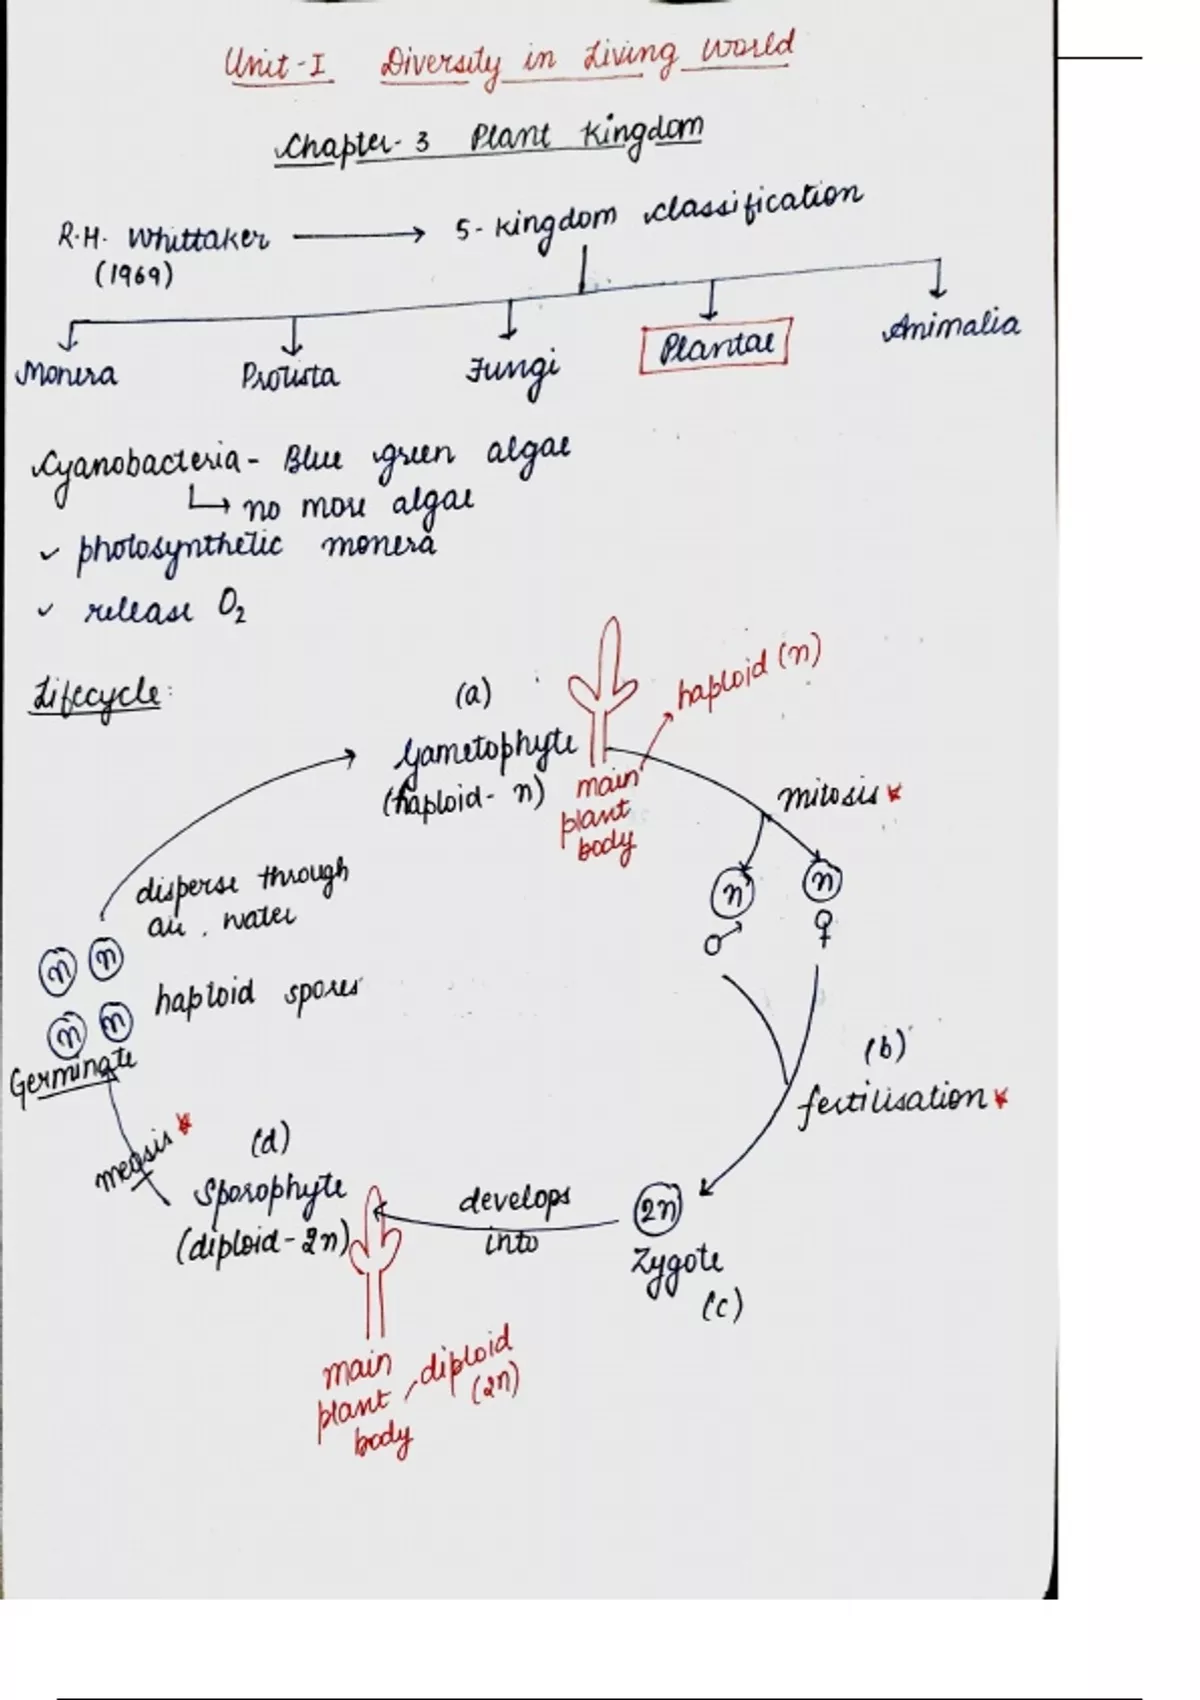 Unit-I Diversity in Living World
Chapter-3 Plant Kingdom
R.H. Whittaker → 5-Kingdom classification
(1969)
Monera Protista Fungi Plantae Animalia
Cyanobacteria - Blue green algae
↳ no more algae
✓ photosynthetic monera
✓ release O₂
Lifecycle:
(a)
Gametophyte
(haploid- n)
haploid (n)
main
plant
body
mitosis
n n
♂ ♀
disperse through
air, water
n n
haploid spores
n n
Germinate
(b)
fertilisation
meosis
(d)
Sporophyte
(diploid-2n)
develops
into
2n
Zygote
(c)
main
plant
body
, diploid
(2n)